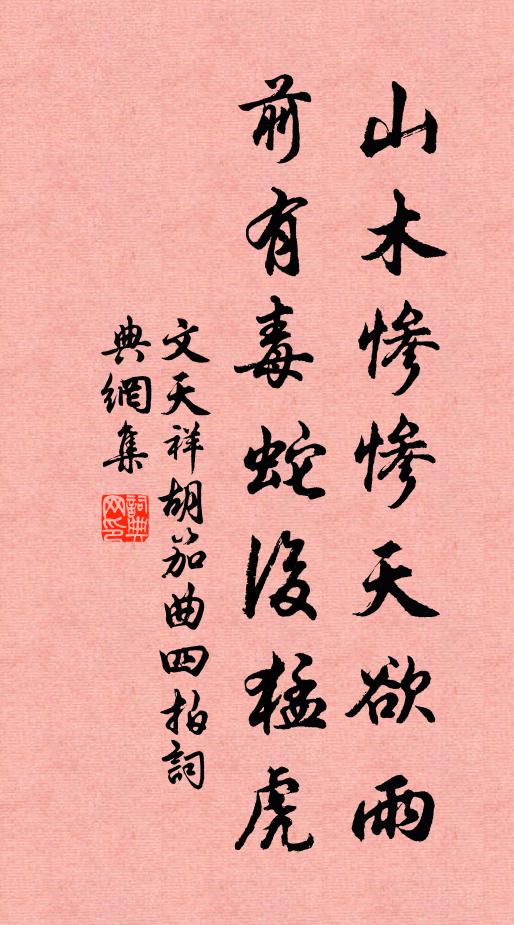 山木慘慘天欲雨
前有毒蛇後猛虎
文天祥胡笳曲四拍詞
典網集
詞典网印